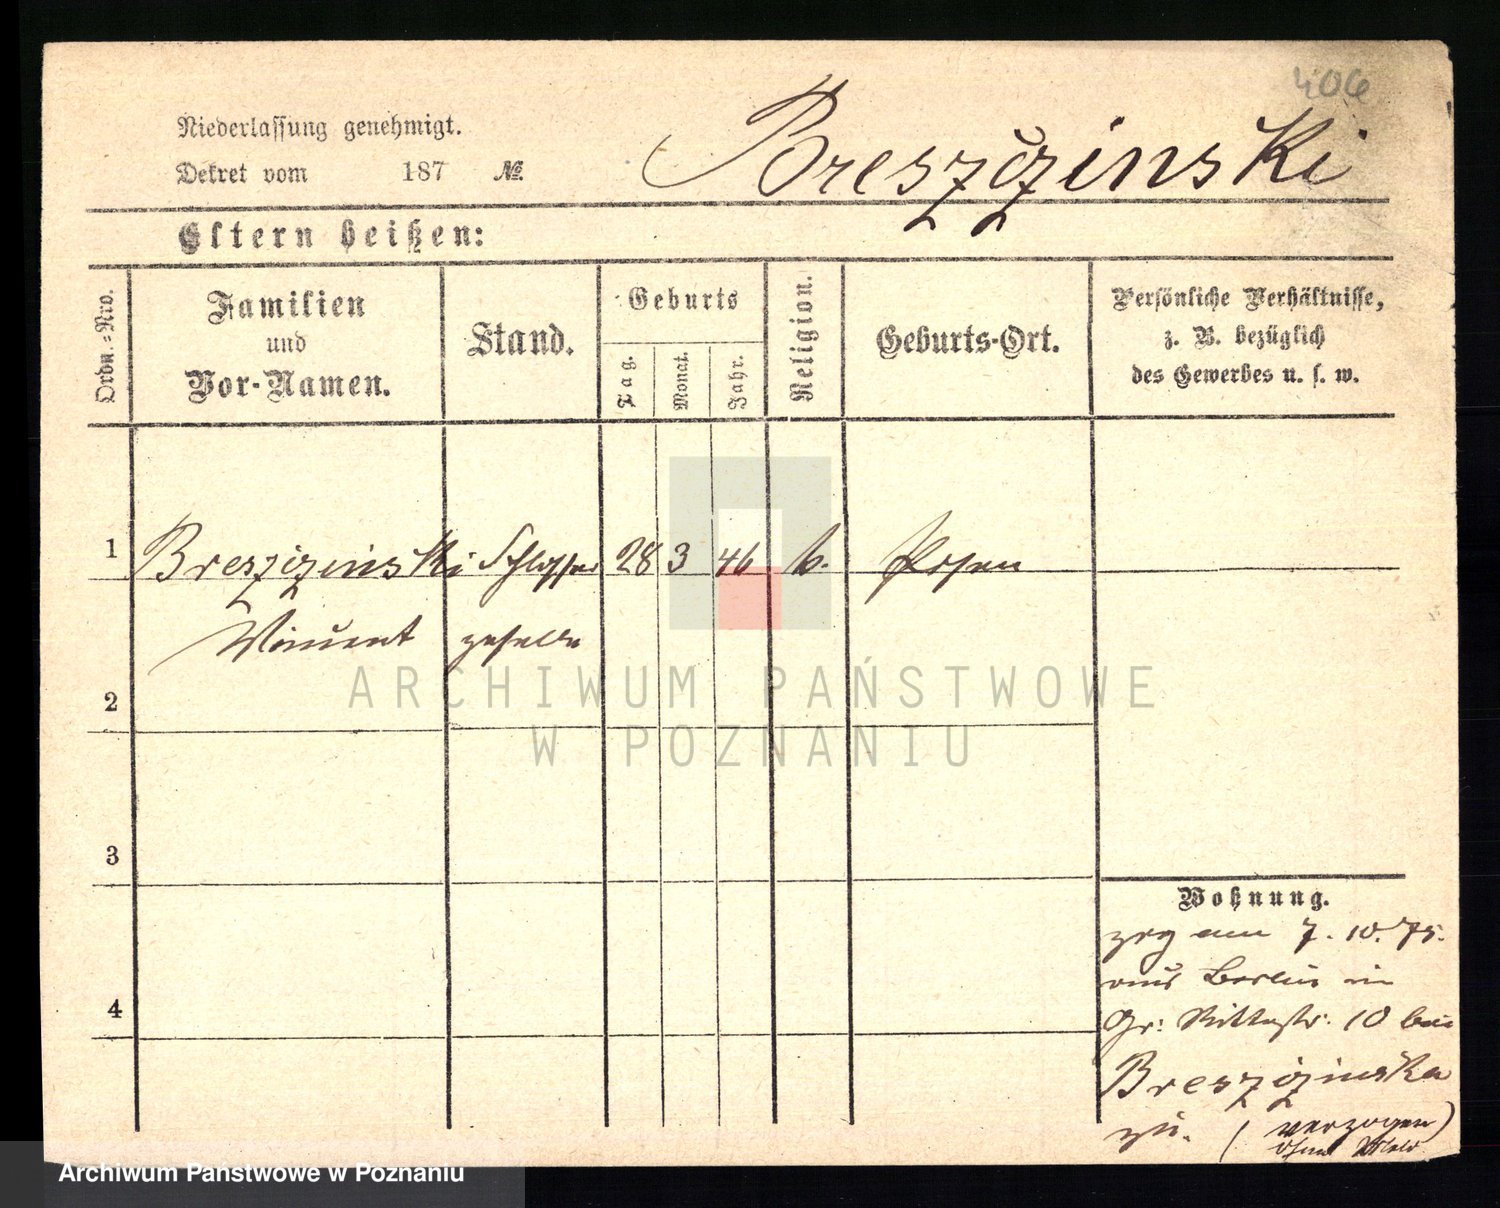 406
Niederlassung genehmigt.
Dekret vom 187 №.
Breszczinski
Eltern heißen:
Ordn.=Nro.
Familien
und
Vor-Namen.
Stand.
Geburts
Tag.
Monat.
Jahr.
Religion.
Geburts-Ort.
Persönliche Verhältnisse,
z. B. bezüglich
des Gewerbes u. s. w.
1 Breszczinski Schlosser 28 3 46 k. Posen
Vincent geselle
ARCHIWUM PAŃSTWOWE
W POZNANIU
2
3
4
Wohnung.
zog am 7. 10. 75.
aus Berlin in
Gr: Ritterstr. 10 bei
Breszczinska
zu. (verzogen)
Archiwum Państwowe w Poznaniu